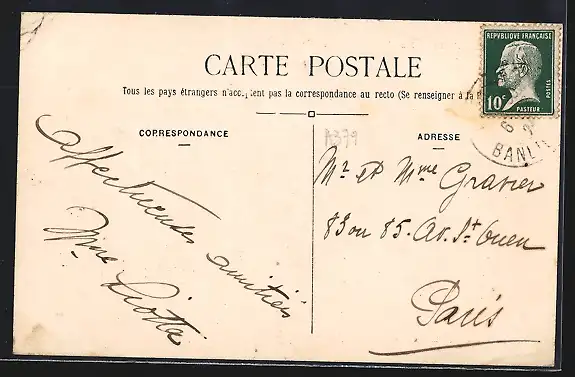 CARTE POSTALE
Tous les pays étrangers n'acceptent pas la correspondance au recto (Se renseigner à la
RÉPUBLIQUE FRANÇAISE
POSTES
10c
PASTEUR
6
BANLI
CORRESPONDANCE
A379
ADRESSE
affectueuses amitiés
Mme Liotta
Mr et Mme Gravier
83 ou 85. Av. St Ouen
Paris